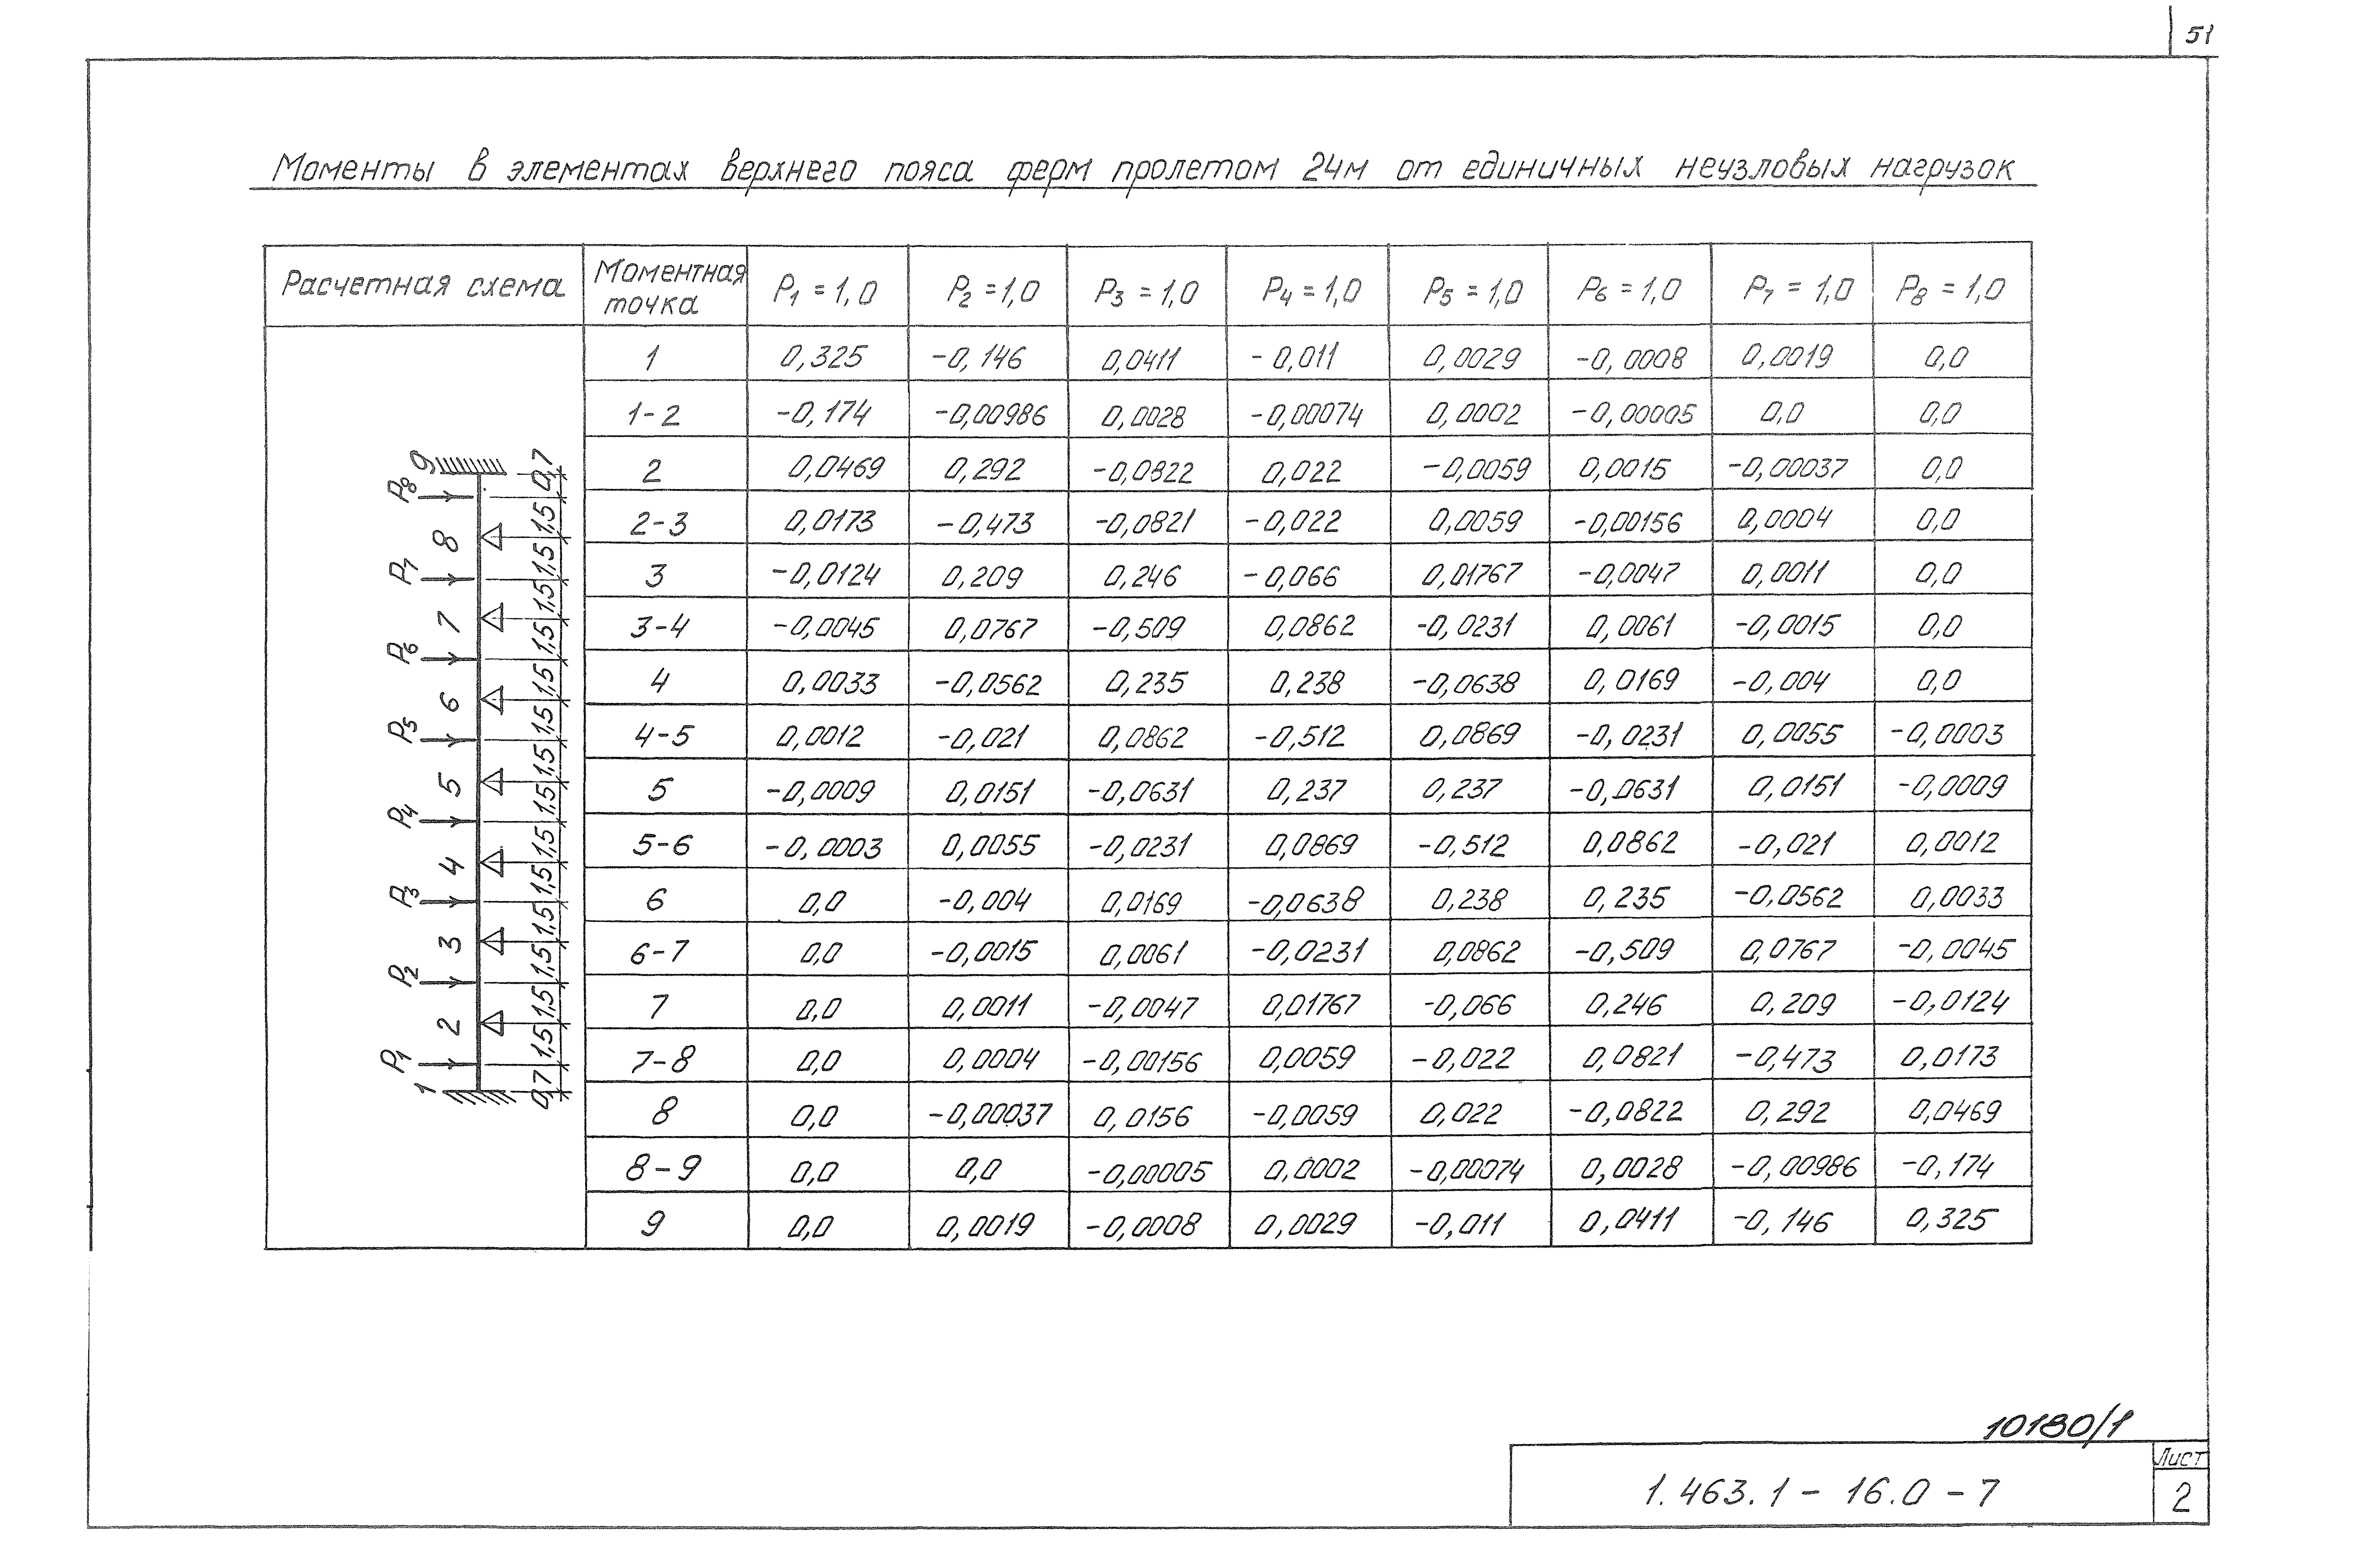 51
Моменты в элементах верхнего пояса ферм пролетом 24м от единичных неузловых нагрузок
Расчетная схема Моментная точка P1 = 1,0 P2 = 1,0 P3 = 1,0 P4 = 1,0 P5 = 1,0 P6 = 1,0 P7 = 1,0 P8 = 1,0
1 0,325 -0,146 0,0411 -0,011 0,0029 -0,0008 0,0019 0,0
1-2 -0,174 -0,00986 0,0028 -0,00074 0,0002 -0,00005 0,0 0,0
2 0,0469 0,292 -0,0822 0,022 -0,0059 0,0015 -0,00037 0,0
2-3 0,0173 -0,473 -0,0821 -0,022 0,0059 -0,00156 0,0004 0,0
3 -0,0124 0,209 0,246 -0,066 0,01767 -0,0047 0,0011 0,0
3-4 -0,0045 0,0767 -0,509 0,0862 -0,0231 0,0061 -0,0015 0,0
4 0,0033 -0,0562 0,235 0,238 -0,0638 0,0169 -0,004 0,0
4-5 0,0012 -0,021 0,0862 -0,512 0,0869 -0,0231 0,0055 -0,0003
5 -0,0009 0,0151 -0,0631 0,237 0,237 -0,0631 0,0151 -0,0009
5-6 -0,0003 0,0055 -0,0231 0,0869 -0,512 0,0862 -0,021 0,0012
6 0,0 -0,004 0,0169 -0,0638 0,238 0,235 -0,0562 0,0033
6-7 0,0 -0,0015 0,0061 -0,0231 0,0862 -0,509 0,0767 -0,0045
7 0,0 0,0011 -0,0047 0,01767 -0,066 0,246 0,209 -0,0124
7-8 0,0 0,0004 -0,00156 0,0059 -0,022 0,0821 -0,473 0,0173
8 0,0 -0,00037 0,0156 -0,0059 0,022 -0,0822 0,292 0,0469
8-9 0,0 0,0 -0,00005 0,0002 -0,00074 0,0028 -0,00986 -0,174
9 0,0 0,0019 -0,0008 0,0029 -0,011 0,0411 -0,146 0,325
P1 P2 P3 P4 P5 P6 P7 P8
1 2 3 4 5 6 7 8 9
0,7 1,5 1,5 1,5 1,5 1,5 1,5 1,5 1,5 1,5 1,5 1,5 1,5 1,5 1,5 0,7
10180/1
1.463.1 - 16.0 - 7
Лист
2